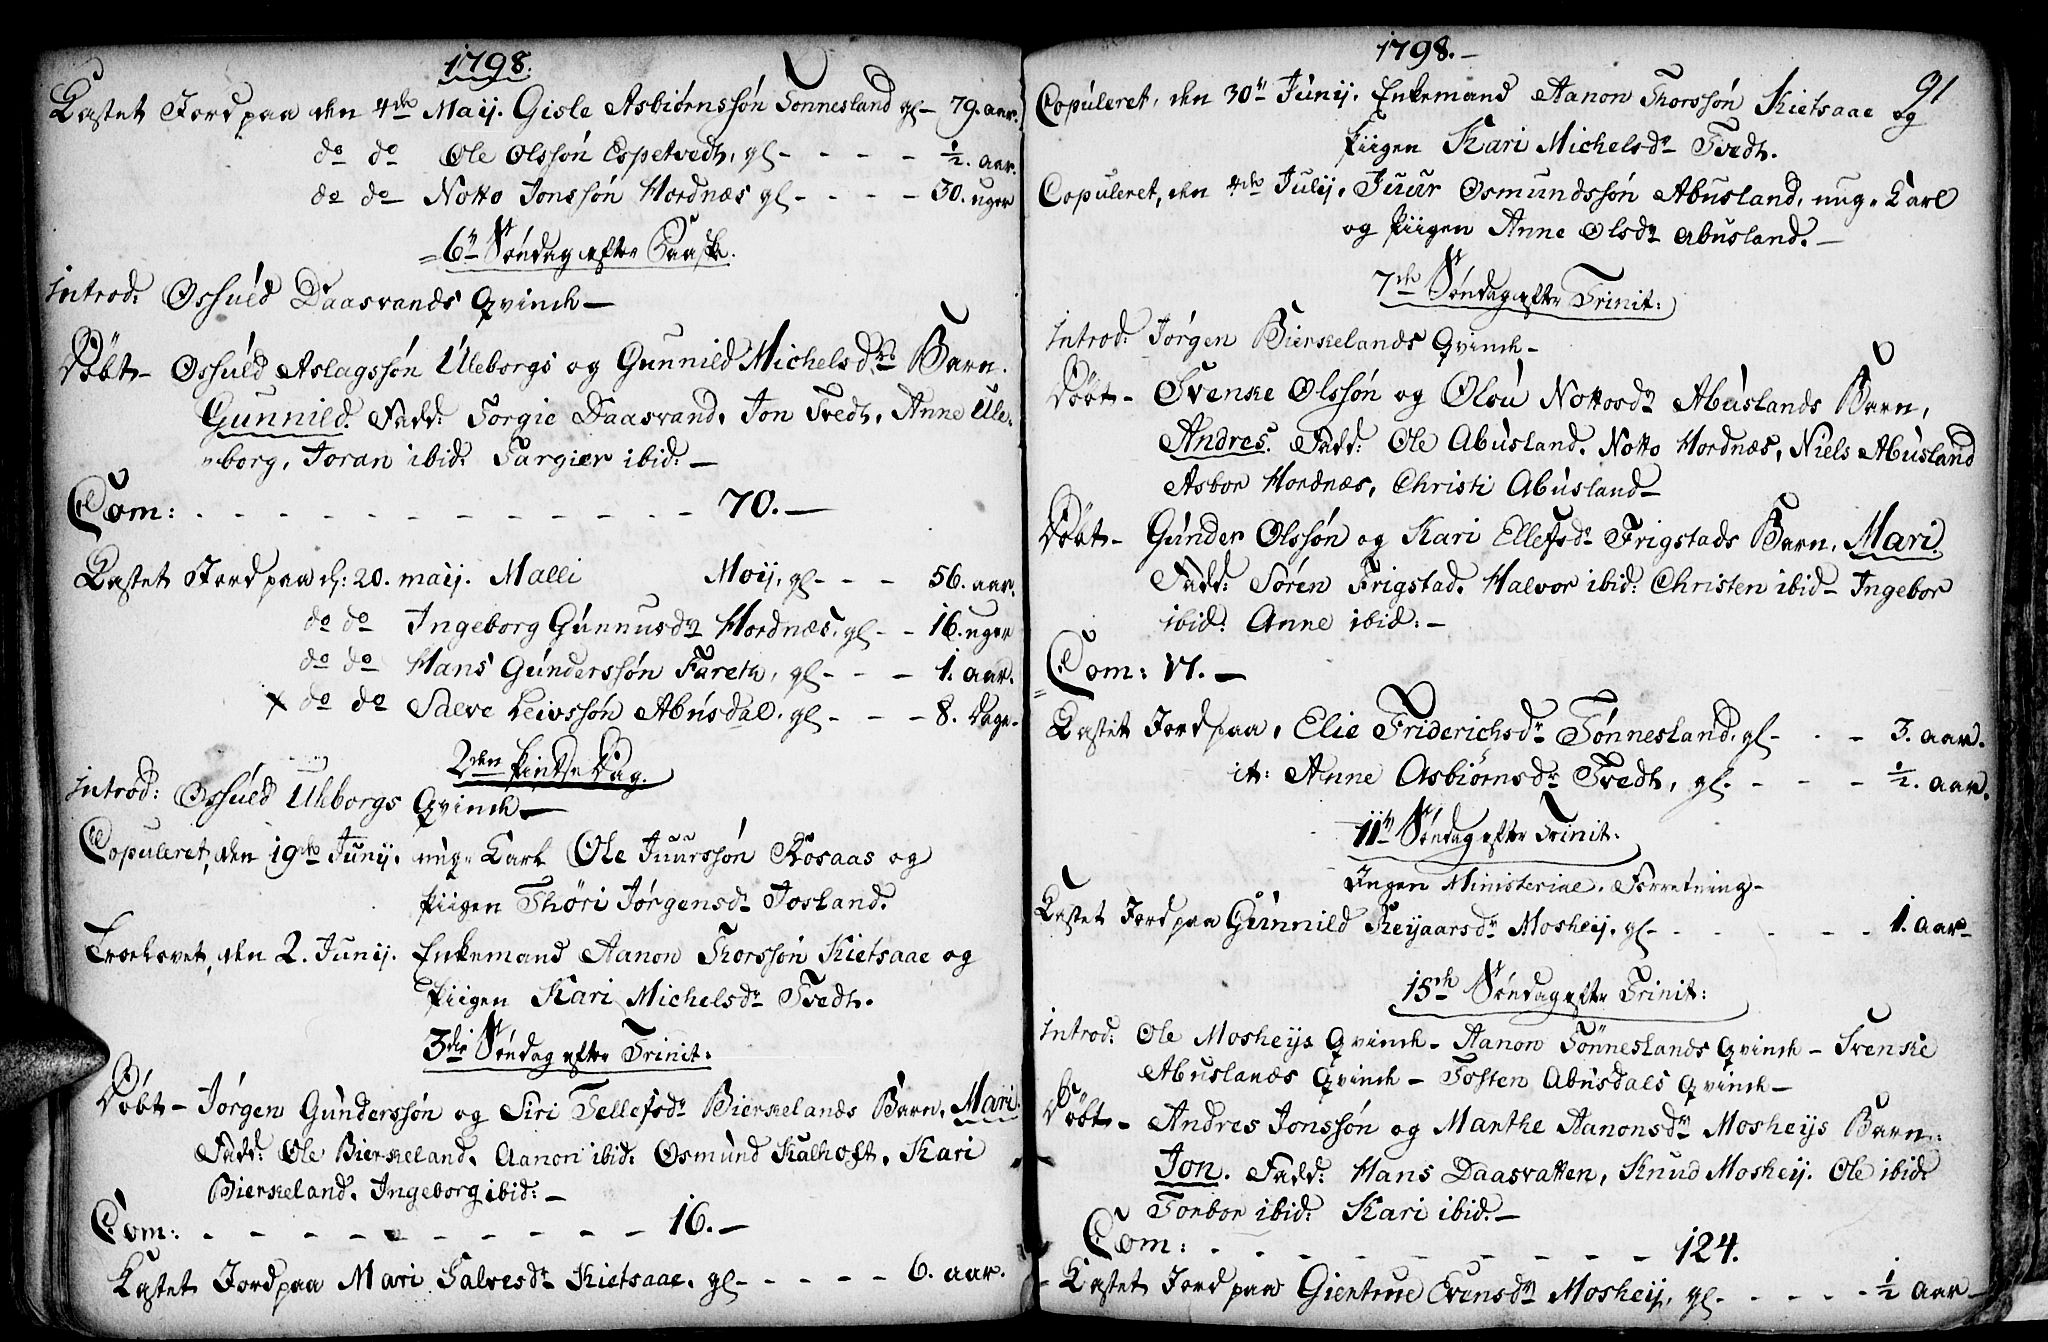 1798.
Kastet Jord paa den 4de Maij. Gisle Asbiørnssøn Tonnesland gl - 79. aar.
do do Ole Olssøn Espetvedt, gl - - - - ½. aar.
do do Notto Jonssøn Hordnæs gl - - - - 30. uger
6te Søndag efter Paaske.
Introd: Osfuld Daasvands Qvinde —
Døbt - Osfuld Aslagssøn Uleborgs og Gunnild Michelsdrs Barn.
Gunnild. Fadd: Torgie Daasvand. Jon Tvedt. Anne Ule-
borg, Joran ibid: Targier ibid: —
Com: - - - - - - - - - - 70. —
Kastet Jord paa d: 20. maij. Malli Moij, gl - - - 56. aar.
do do Ingeborg Gunnusdr Hordnæs. gl - - 16. uger
do do Hans Gunderssøn Fareth, gl - - - 1. aar.
x do do Salve Leivssøn Abusdal. gl - - - 8. Dage -
2den Pintse Dag.
Introd: Osfuld Uleborgs Qvinde —
Copuleret, den 19de Junij. ung Karl Ole Juurssøn Aosaas og
Piigen Thöri Jørgensdr Josland.
Troelovet, den 2. Junij. Enkemand Aanon Thorssøn Kietsaae og
Piigen Kari Michelsdr Tvedt.
3die Søndag efter Trinit:
Døbt - Jørgen Gunderssøn og Siri Tellefsdr Bierkelands Barn. Mari.
Fadd: Ole Bierkeland. Aanon ibid. Osmund Kalhoft. Kari
Bierkeland. Ingeborg ibid: —
Com: - - - - - - - - - 16. —
Kastet Jord paa Mari Salvesdr Kietsaae. gl - - - - - 6. aar.
1798. —
91
Copuleret, den 30te Junij. Enkemand Aanon Thorssøn Kietsaae og
Piigen Kari Michelsdr Tvedt.
Copuleret, den 4de Julij, Juur Osmundssøn Abusland, ung Karl
og Piigen Anne Olsdr Abusland. —
7de Søndag efter Trinit:
Introd: Jørgen Bierkelands Qvinde -
Døbt - Svenke Olssøn og Olou Nottosdr Abuslands Barn,
Andres. Fadd: Ole Abusland. Notto Hordnæs, Niels Abusland
Asbor Hordnæs, Christi Abusland —
Døbt - Gunder Olssøn og Kari Ellefsdr Frigstads Barn. Mari.
Fadd: Sören Frigstad. Halvor ibid: Christen ibid - Ingebor
ibid: Anne ibid: —
Com: 17. —
Kastet Jord paa, Elie Friderichsdr Tønnesland, gl - - - 3. aar.
it: Anne Asbiørnsdr Tvedt, gl. - - - - ½. aar.
11te Søndag efter Trinit:
Ingen Ministerial. Forretning -
Kastet Jord paa Gunnild Reijaarsdr Mosheij. gl - - - - - - 1. aar -
15de Søndag efter Trinit:
Introd: Ole Mosheijs Qvinde - Aanon Tönneslands Qvinde - Svenke
Abuslands Qvinde - Tosten Abusdals Qvinde —
Døbt - Andres Jonssøn og Marthe Aanonsdr Mosheijs Barn:
Jon. Fadd: Hans Daasvatten, Knud Mosheij. Ole ibid:
Torbor ibid: Kari ibid: —
Com: - - - - - - - - - - 124.
Kastet Jord paa Giertrue Evensdr Mosheij, gl - - - - - ½ Aar —